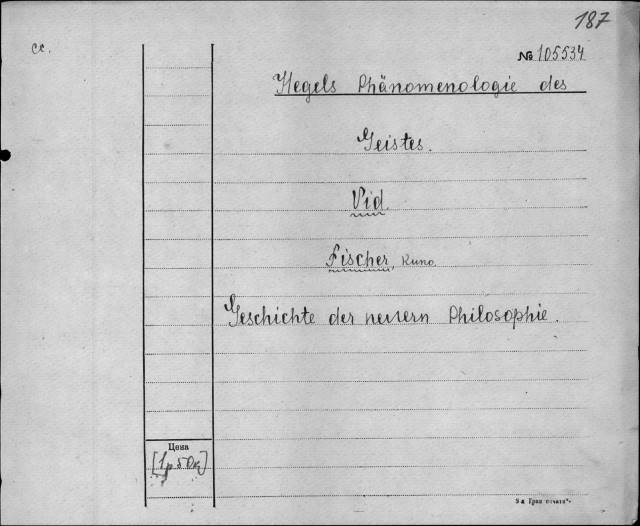 187
се.
№ 105534
Hegels Phänomenologie des
Geistes.
Vid.
Fischer, Kuno.
Geschichte der neuern Philosophie.
Цена
[1р50к]